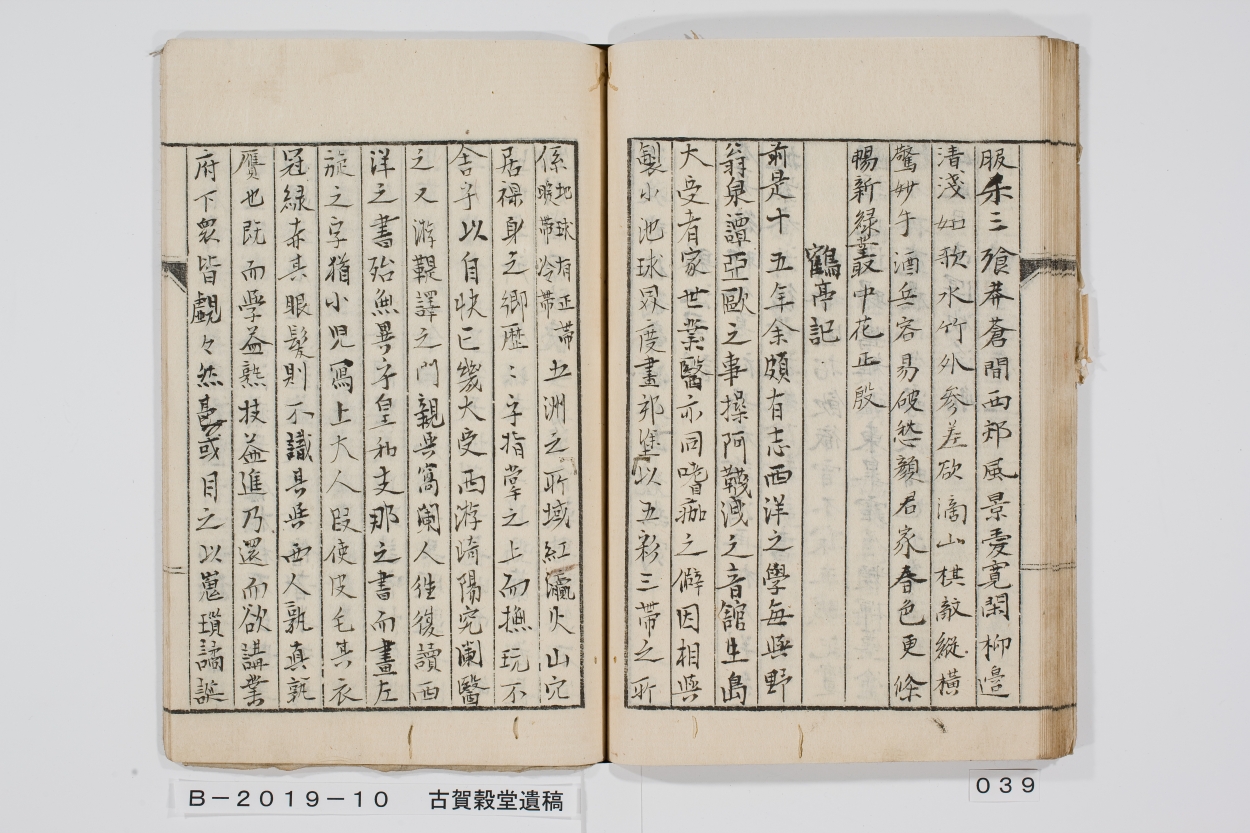 服乐三飱莽蒼間西郊風景愛寛閑柳邉
清淺妓歌水竹外參差欲滴山棋敵縱橫
驚妙手酒兵容易破愁顔君家春色更條
暢新緑叢中花正殷
鶴亭記
前是十五年余頗有志西洋之學每與野
翁泉譚亞歐之事操阿鞿洩之音舘生島
大受者家世業醫亦同嗜痂之僻因相與
製水池球界度畫郊堡以五彩三帶之所
係地球有正帶暖帶冷帶五洲之所域紅瀛火山穴
居裸身之鄉歴〻字指掌之上而撫玩不
舍乎以自快已幾大受西游崎陽究闌醫
之又游鞮譯之門親與寓闌人徃復讀西
洋之書殆無異乎皇和支那之書而畫左
旋之字猶小児寫上大人叚使皮毛其衣
冠緑赤其眼髮則不識其與西人孰真孰
贋也既而學益熟技益進乃還而欲講業
府下衆皆覷々然或目之以蒐瑣譎誕